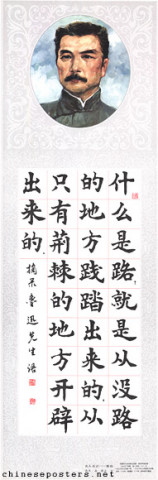 什么是路，就是从没路
的地方践踏出来的，从
只有荆棘的地方开辟
出来的。
摘录鲁迅先生语
chineseposters.net